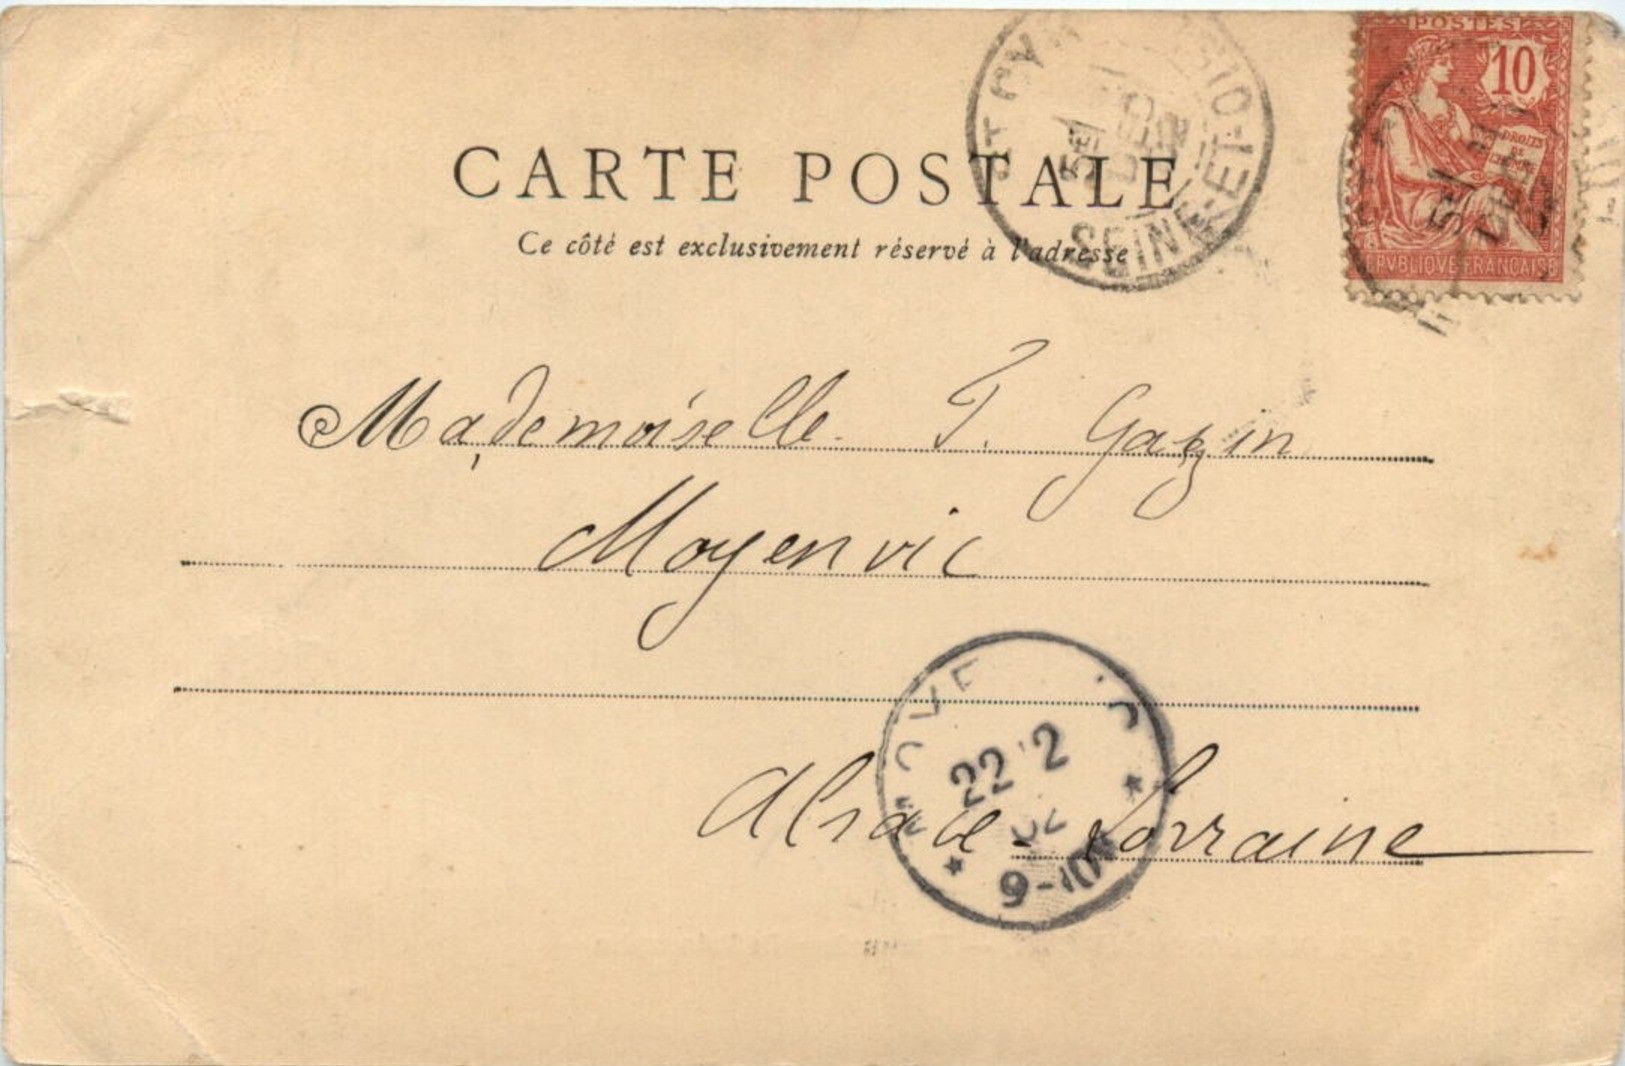 POSTES
10
DROITS
DE
RÉPVBLIQVE FRANÇAISE
ST CYR
SEINE-ET-OISE
CARTE POSTALE
Ce côté est exclusivement réservé à l'adresse
Mademoiselle F. Gazin
Moyenvic
22 2
02
9-10
Alsace-Lorraine